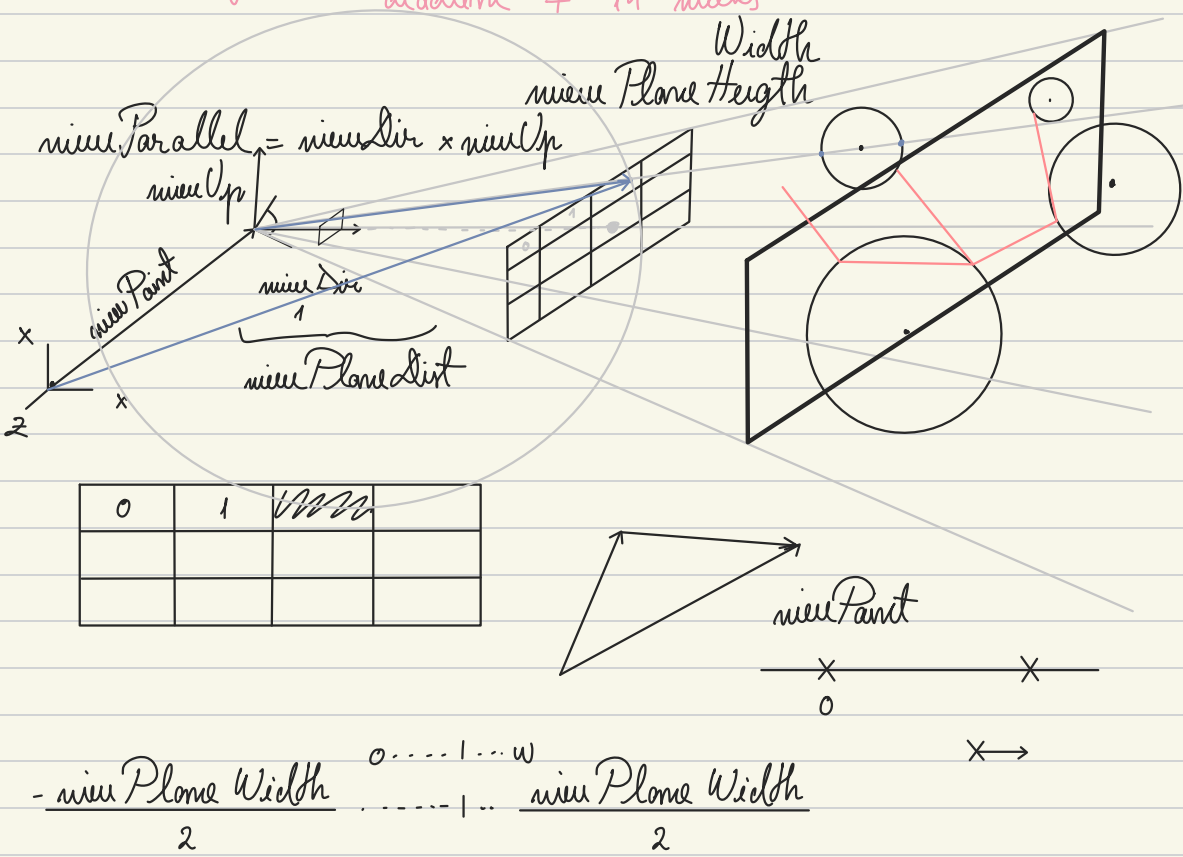 Width
view Plane Heigth
viewParallel = viewDir × viewUp
viewUp
viewPoint
viewDir
1
view PlaneDist
X
x
Z
0
1
0 1
viewPoint
0
0 ..... | .... w
- view Plane Width / 2 ..... | .. view Plane Width / 2
X